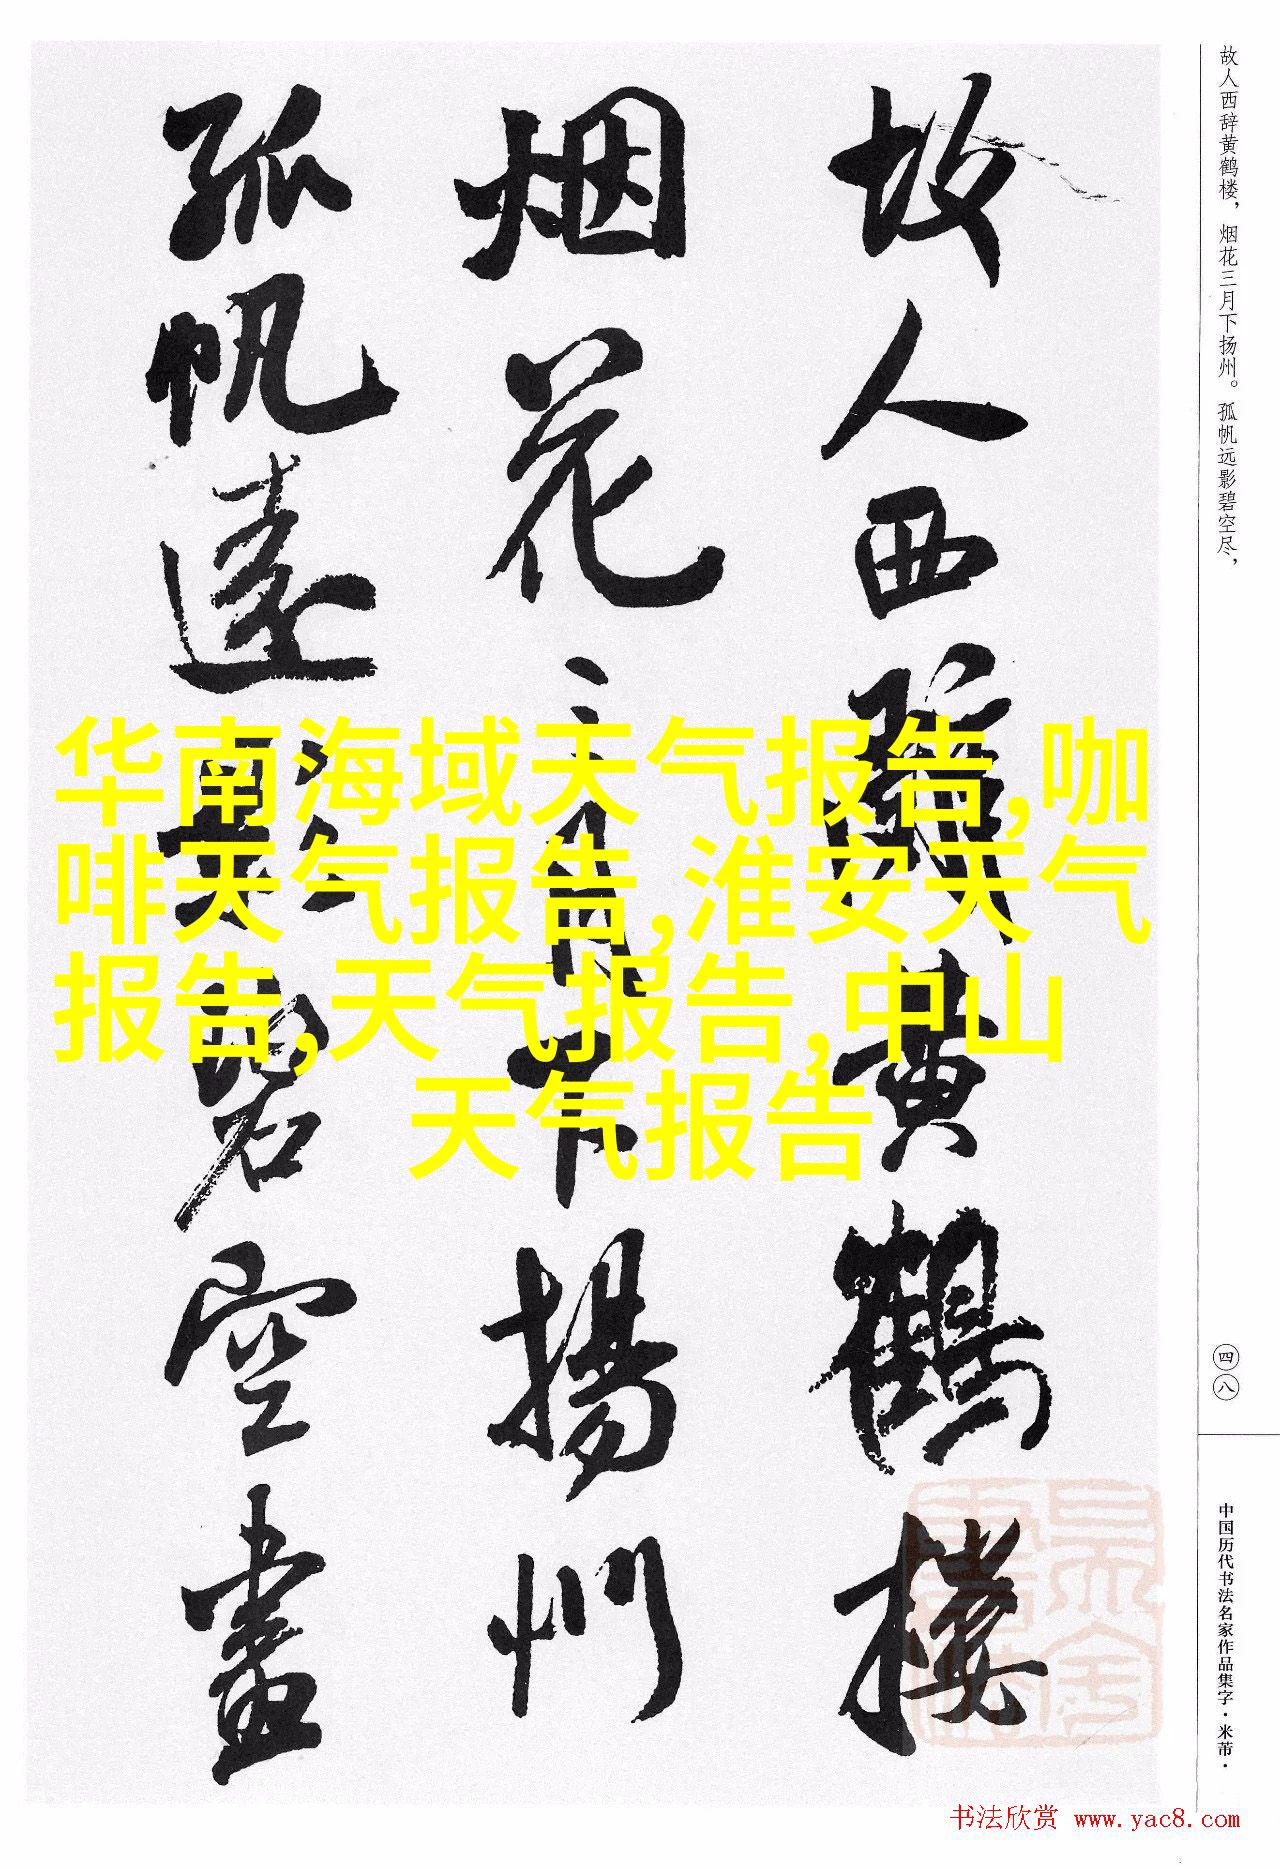 故人西辞黄鹤楼，烟花三月下扬州。孤帆远影碧空尽，
故人西辭黄鹤楼
烟花三月下揚州
孤帆遠影碧空盡
华南海域天气报告,咖
啡天气报告,淮安天气
报告,天气报告,中山
天气报告
四八
中国历代书法名家作品集字·米芾·
书法欣赏 www.yac8.com